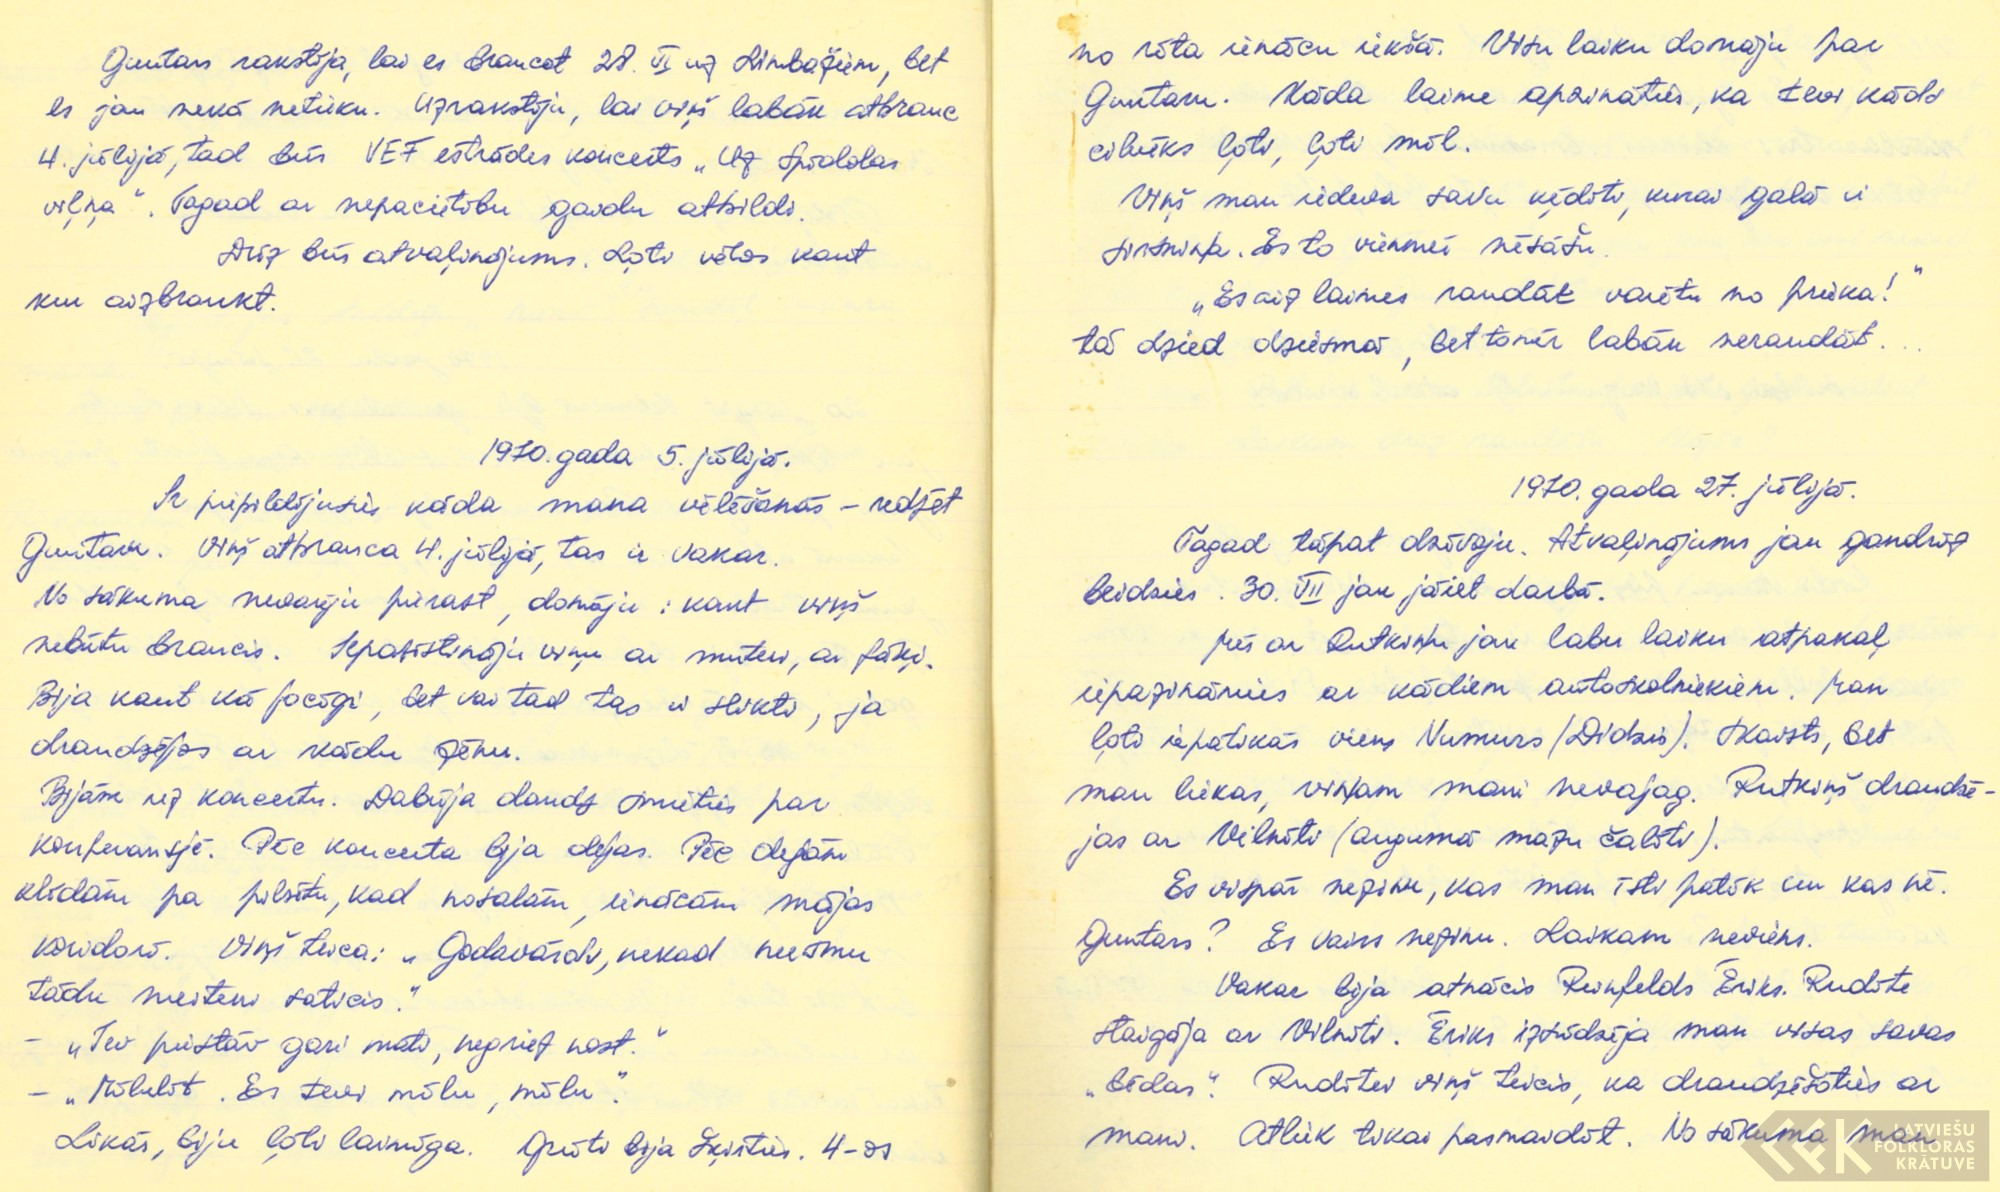 Guntars rakstīja, lai es braucot 28. VI uz Limbažiem, bet
es jau nekā netieku. Uzrakstīju, lai viņš labāk atbrauc
4. jūlijā, tad būs VEF estrādes koncerts „Uz Spīdolas
viļņa". Tagad ar nepacietību gaidu atbildi.
Drīz būs atvaļinājums. Ļoti vēlos kaut
kur aizbraukt.
1970. gada 5. jūlijā.
Ir piepildījusies kāda mana vēlēšanās – redzēt
Guntaru. Viņš atbrauca 4. jūlijā, tas ir vakar.
No sākuma nevarēju pierast, domāju: kaut viņš
nebūtu braucis. Iepazīstināju viņu ar muteri, ar fāķi.
Bija kaut kā jocīgi, bet vai tad tas ir slikti, ja
draudzējos ar kādu zēnu.
Bijām uz koncertu. Dabūja daudz smieties par
konferansjē. Pēc koncerta bija dejas. Pēc dejām
klīdām pa pilsētu, kad nosalām, ienācām mājas
koridorī. Viņš teica: „Godavārds, nekad neesmu
tādu meiteni saticis."
– „Tev piestāv gari mati, negriez nost."
– „Mīlulīt. Es tevi mīlu, mīlu".
Likās, biju ļoti laimīga. Grūti bija šķirties. 4-os
no rīta ienācu iekšā. Visu laiku domāju par
Guntaru. Kāda laime apzināties, ka tevi kāds
cilvēks ļoti, ļoti mīl.
Viņš man iedeva savu ķēdīti, kurai galā ir
sirsniņa. Es to vienmēr nēsāšu.
„Es aiz laimes raudāt varētu no prieka!"
tā dzied dziesmā, bet tomēr labāk neraudāt...
1970. gada 27. jūlijā.
Tagad tāpat dzīvoju. Atvaļinājums jau gandrīz
beidzies. 30. VII jau jāiet darbā.
Mēs ar Rutkiņu jau labu laiku atpakaļ
iepazināmies ar kādiem autoskolniekiem. Man
ļoti iepatikās viens Numurs (Didzis). Skaists, bet
man liekas, viņam mani nevajag. Rutkiņš draudzē-
jas ar Vilnīti (augumā mazu čalīti).
Es vispār nezinu, kas man īsti patīk un kas nē.
Guntars? Es vairs nezinu. Laikam neviens.
Vakar bija atnācis Reinfelds Ēriks. Rudīte
staigāja ar Vilnīti. Ēriks izsūdzēja man visas savas
„bēdas". Rudītei viņš teicis, ka draudzēšoties ar
mani. Atliek tikai pasmaidīt. No sākuma man
LATVIEŠU
FOLKLORAS
KRĀTUVE